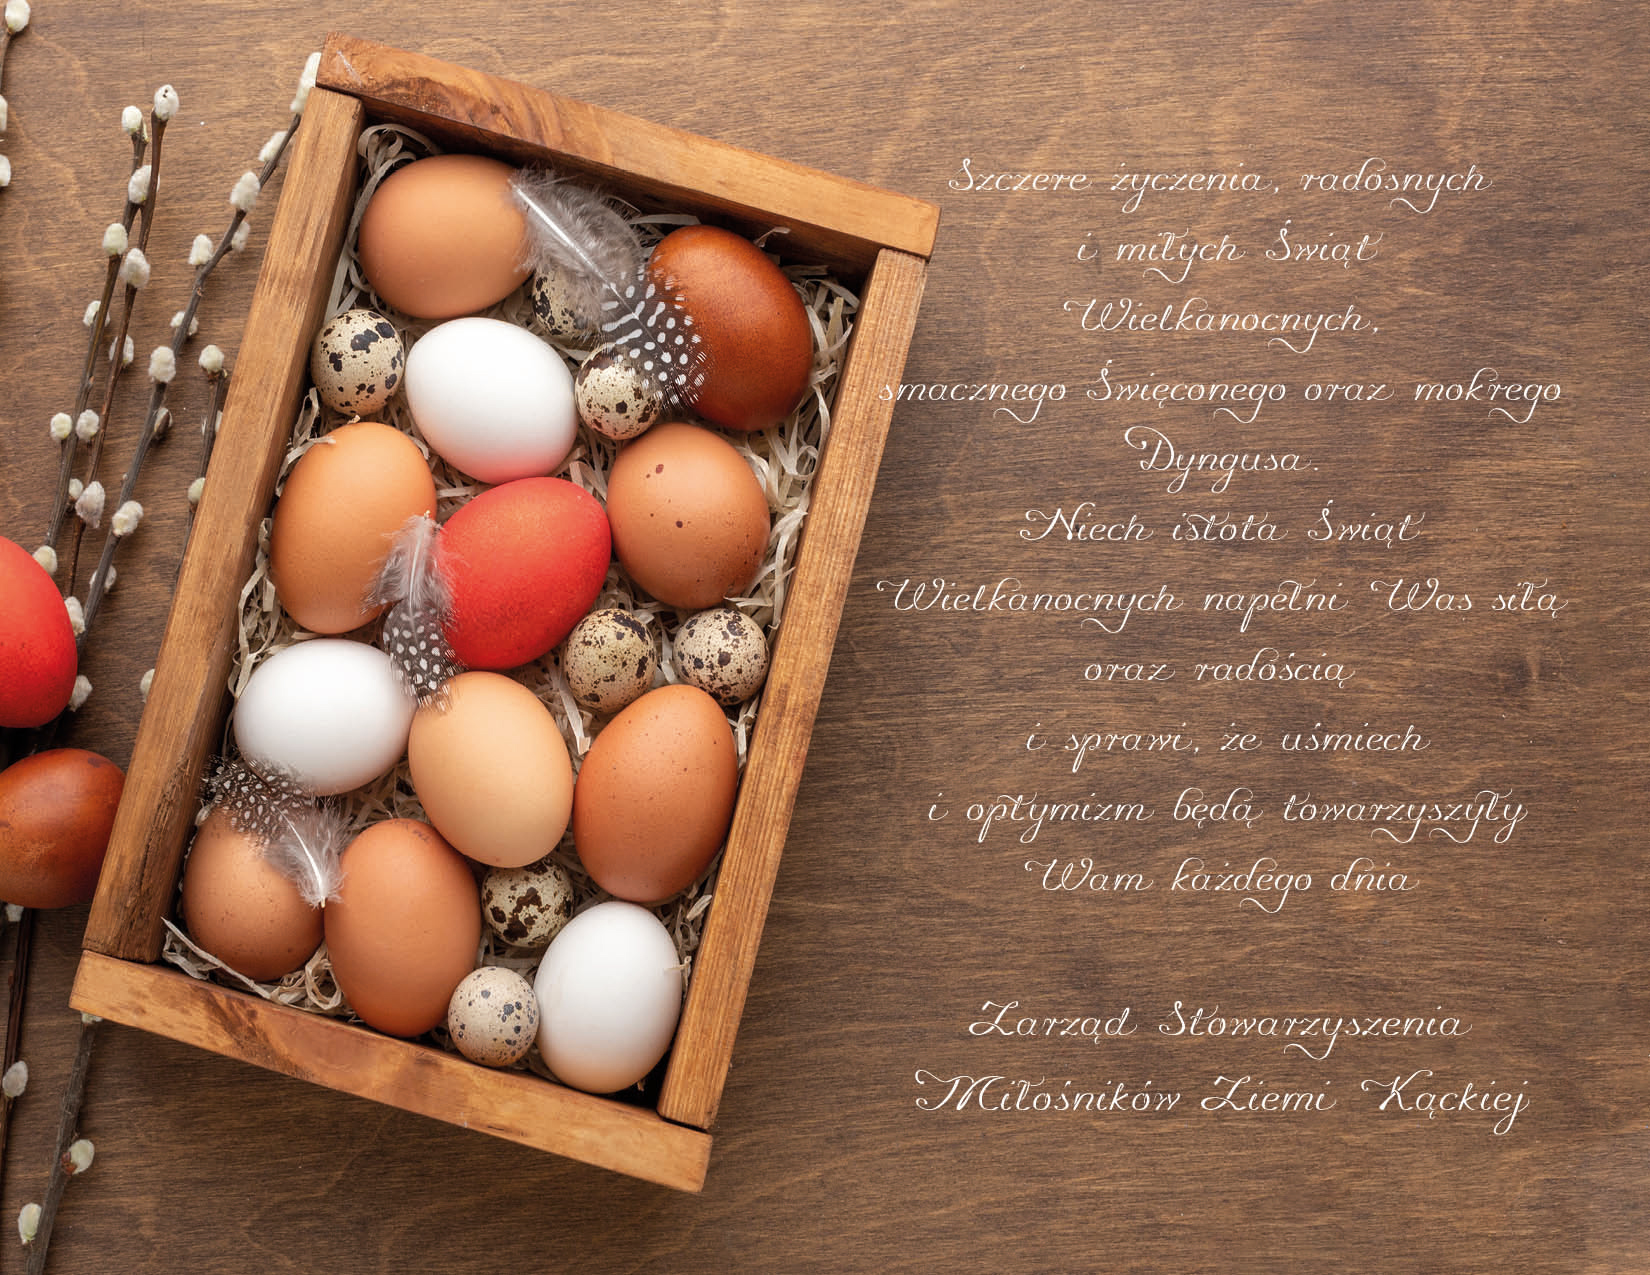 Szczere życzenia, radosnych
i miłych Świąt
Wielkanocnych,
smacznego Święconego oraz mokrego
Dyngusa.
Niech istota Świąt
Wielkanocnych napełni Was siłą
oraz radością
i sprawi, że uśmiech
i optymizm będą towarzyszyły
Wam każdego dnia
Zarząd Stowarzyszenia
Miłośników Ziemi Kąckiej